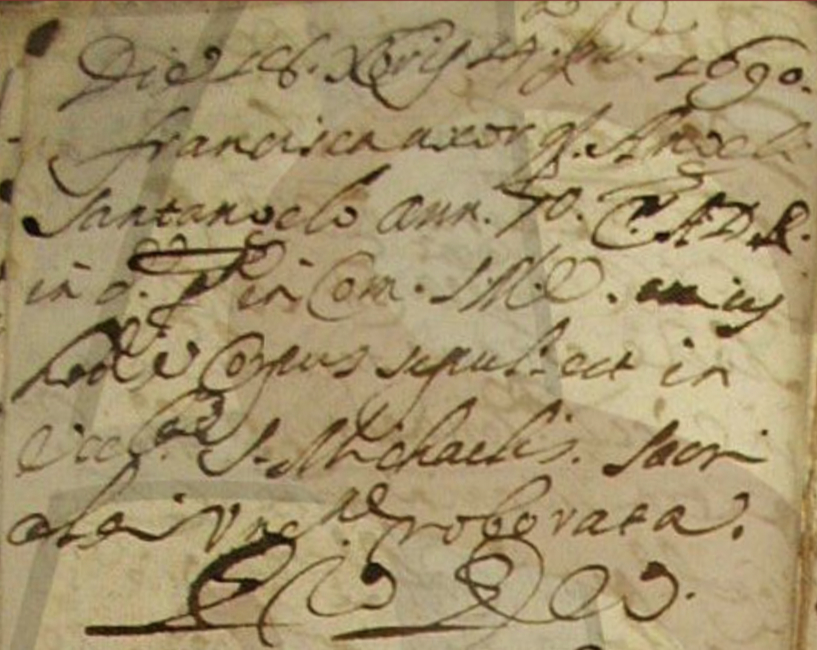 Die 18. Xbris 14. Ind. 1690.
Francisca uxor q. Angeli
Santangelo ann. 70. C. A. D. R.
in d. in Com. S. M. E. cuius
hodie Corpus sepul. est in
Eccl. S. Michaelis. Sacri
olei Unc.ne roborata.